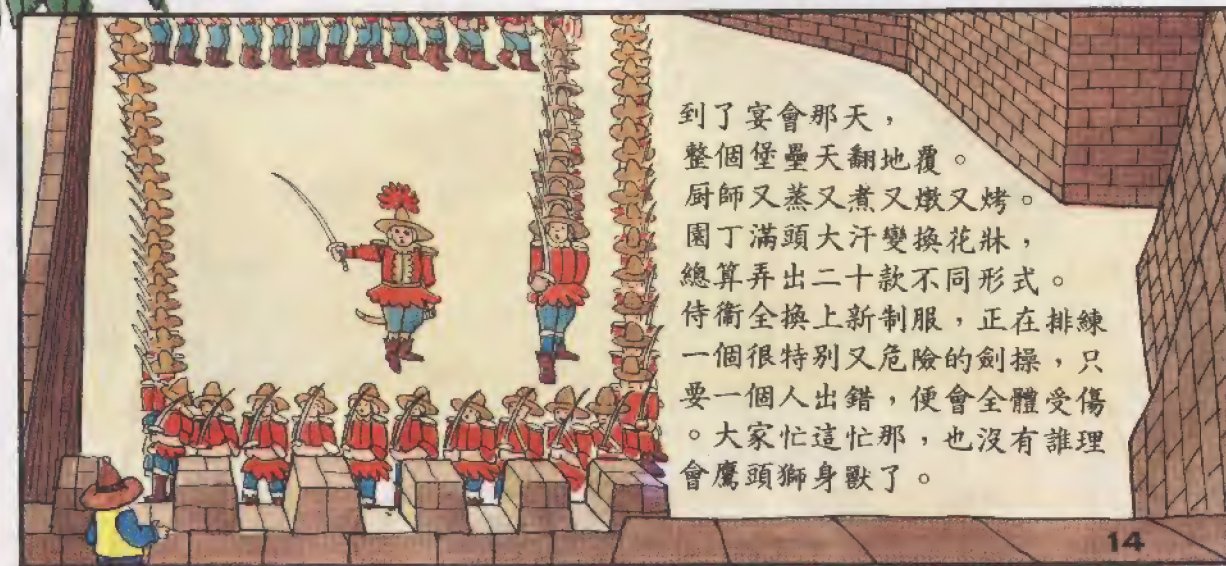 到了宴會那天，
整個堡壘天翻地覆。
厨師又蒸又煮又燉又烤。
園丁滿頭大汗變換花牀，
總算弄出二十款不同形式。
侍衞全換上新制服，正在排練
一個很特别又危險的劍操，只
要一個人出錯，便會全體受傷
。大家忙這忙那，也沒有誰理
會鷹頭獅身獸了。
14